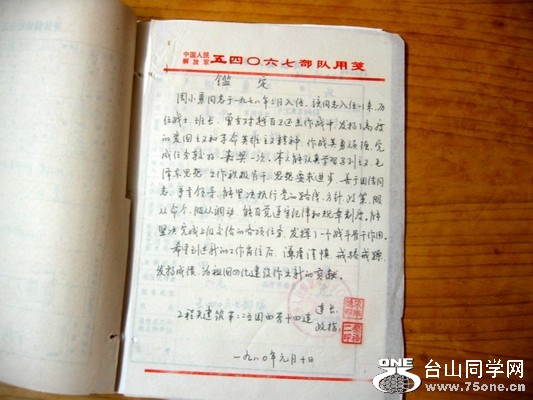 中国人民
解放军 五四〇六七部队用笺
鉴定
周小勇同志于一九七八年二月入伍，该同志入伍以来，历
任战士、班长，曾参加越自卫还击作战中，发扬了高度
的爱国主义和革命英雄主义精神，作战英勇顽强，完
成任务较好，嘉奖一次。本人能认真学习马列主义、毛
泽东思想，工作积极肯干，思想要求进步，善于团结同
志，尊重领导，能坚决执行党的路线、方针、政策，服
从命令，服从调动，能自觉遵守纪律和规章制度，能
坚决完成上级交给的各项任务，发挥了一个战斗骨干作用。
希望到新的工作岗位后，谦虚谨慎，戒骄戒躁，
发扬成绩，为祖国四化建设作出新的贡献。
工程兵建筑第一二五团四营十四连 连长
政指
一九八〇年元月十日
ONE 台山同学网
www.75one.cn